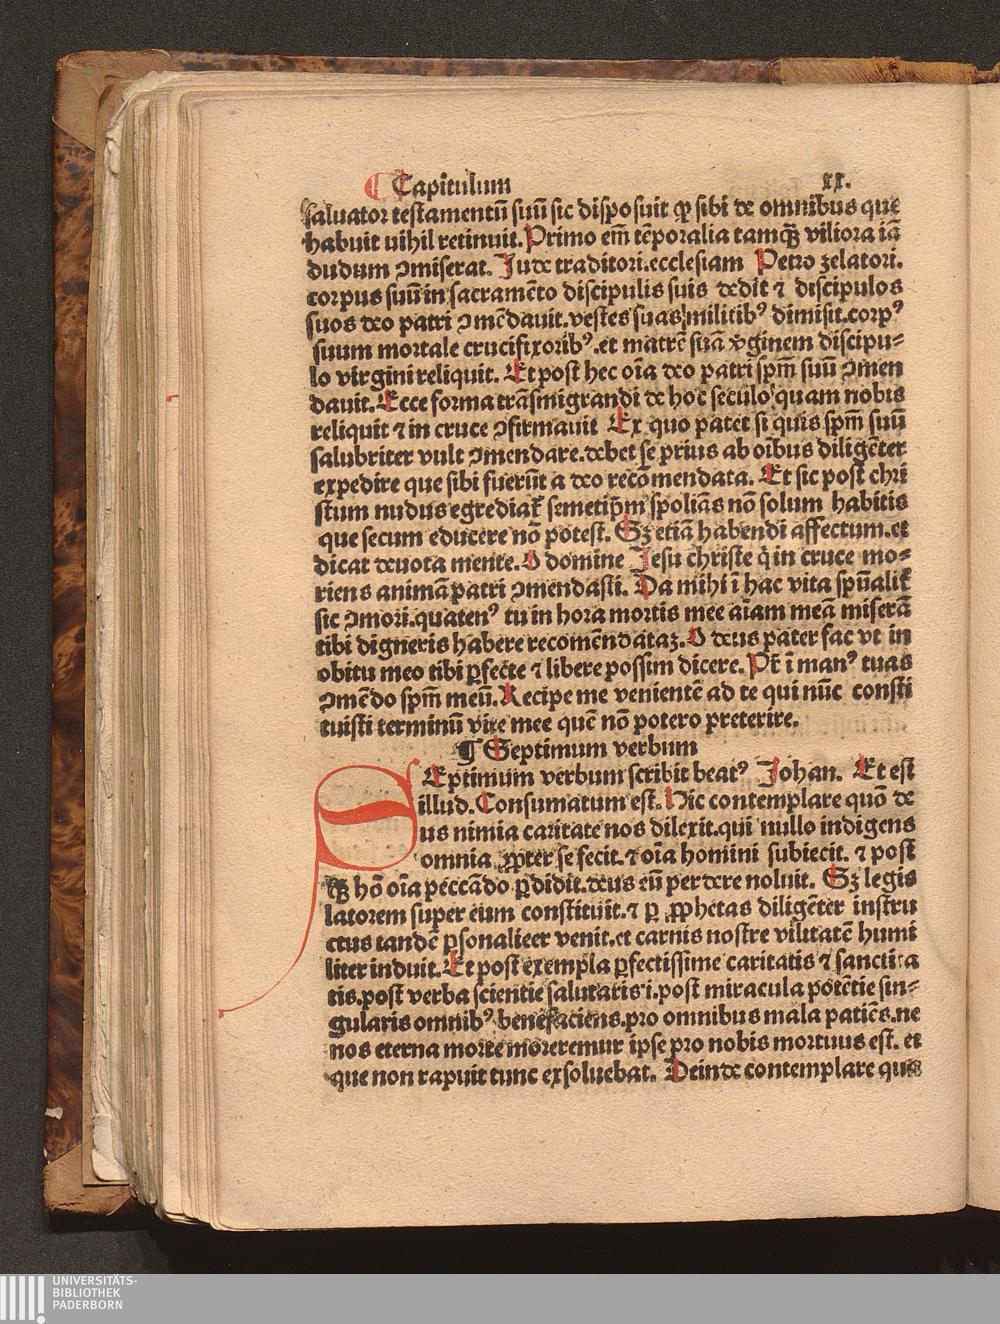 ¶ Capitulum xx.
saluator testamentū suū sic disposuit ꝙ sibi de omnibus que
habuit nihil retinuit. Primo em̄ tēporalia tamqꝫ viliora iā
dudum ꝯmiserat. Jude traditori. ecclesiam Petro zelatori.
corpus suū in sacramēto discipulis suis dedit ⁊ discipulos
suos deo patri ꝯmēdauit. vestes suas militibꝰ dimisit. corpꝰ
suum mortale crucifixoribꝰ. et matrē suā v̓ginem discipu⸗
lo virgini reliquit. Et post hec oīa deo patri spm̄ suū ꝯmen
dauit. Ecce forma trāsmigrandi de hoc seculo quam nobis
reliquit ⁊ in cruce ꝯfirmauit Ex quo patet si quis spm̄ suū
salubriter vult ꝯmendare. debet se prius ab oībus diligēter
expedire que sibi fuerūt a deo recōmendata. Et sic post chri
stum nudus egrediat᷑ semetip̄m spoliās nō solum habitis
que secum educere nō potest. Sꝫ etiā habendi affectum. et
dicat deuota mente. O domine Jesu christe q̇ in cruce mo⸗
riens animā patri ꝯmendasti. Da mihi ī hac vita spūalit᷑
sic ꝯmori. quatenꝰ tu in hora mortis mee aīam meā miserā
tibi digneris habere recomēndataꝫ. O deus pater fac vt in
obitu meo tibi ꝑfecte ⁊ libere possim dicere. Pr̄ ī manꝰ tuas
ꝯmēdo spm̄ meū. Recipe me venientē ad te qui nūc consti
tuisti terminū vite mee quē nō potero preterire.
¶ Septimum verbum
SEptimum verbum scribit beatꝰ Johan. Et est
illud. Consumatum est. Hic contemplare quō de
us nimia caritate nos dilexit. qui nullo indigens
omnia ꝓpter se fecit. ⁊ oīa homini subiecit. ⁊ post
qꝫ hō oīa peccādo ꝑdidit. deus eū perdere noluit. Sꝫ legis
latorem super eum constituit. ⁊ ꝑ ꝓphetas diligēter instru
ctus tandē ꝑsonalieer venit. et carnis nostre vilitatē humi
liter induit. Et post exempla ꝑfectissime caritatis ⁊ sanctita
tis. post verba scientie salutaris i. post miracula potētie sin⸗
gularis omnibꝰ benefaciens. pro omnibus mala patiēs. ne
nos eterna morte moreremur ipse pro nobis mortuus est. et
que non rapuit tunc exsoluebat. Deinde contemplare que
UNIVERSITÄTS-
BIBLIOTHEK
PADERBORN